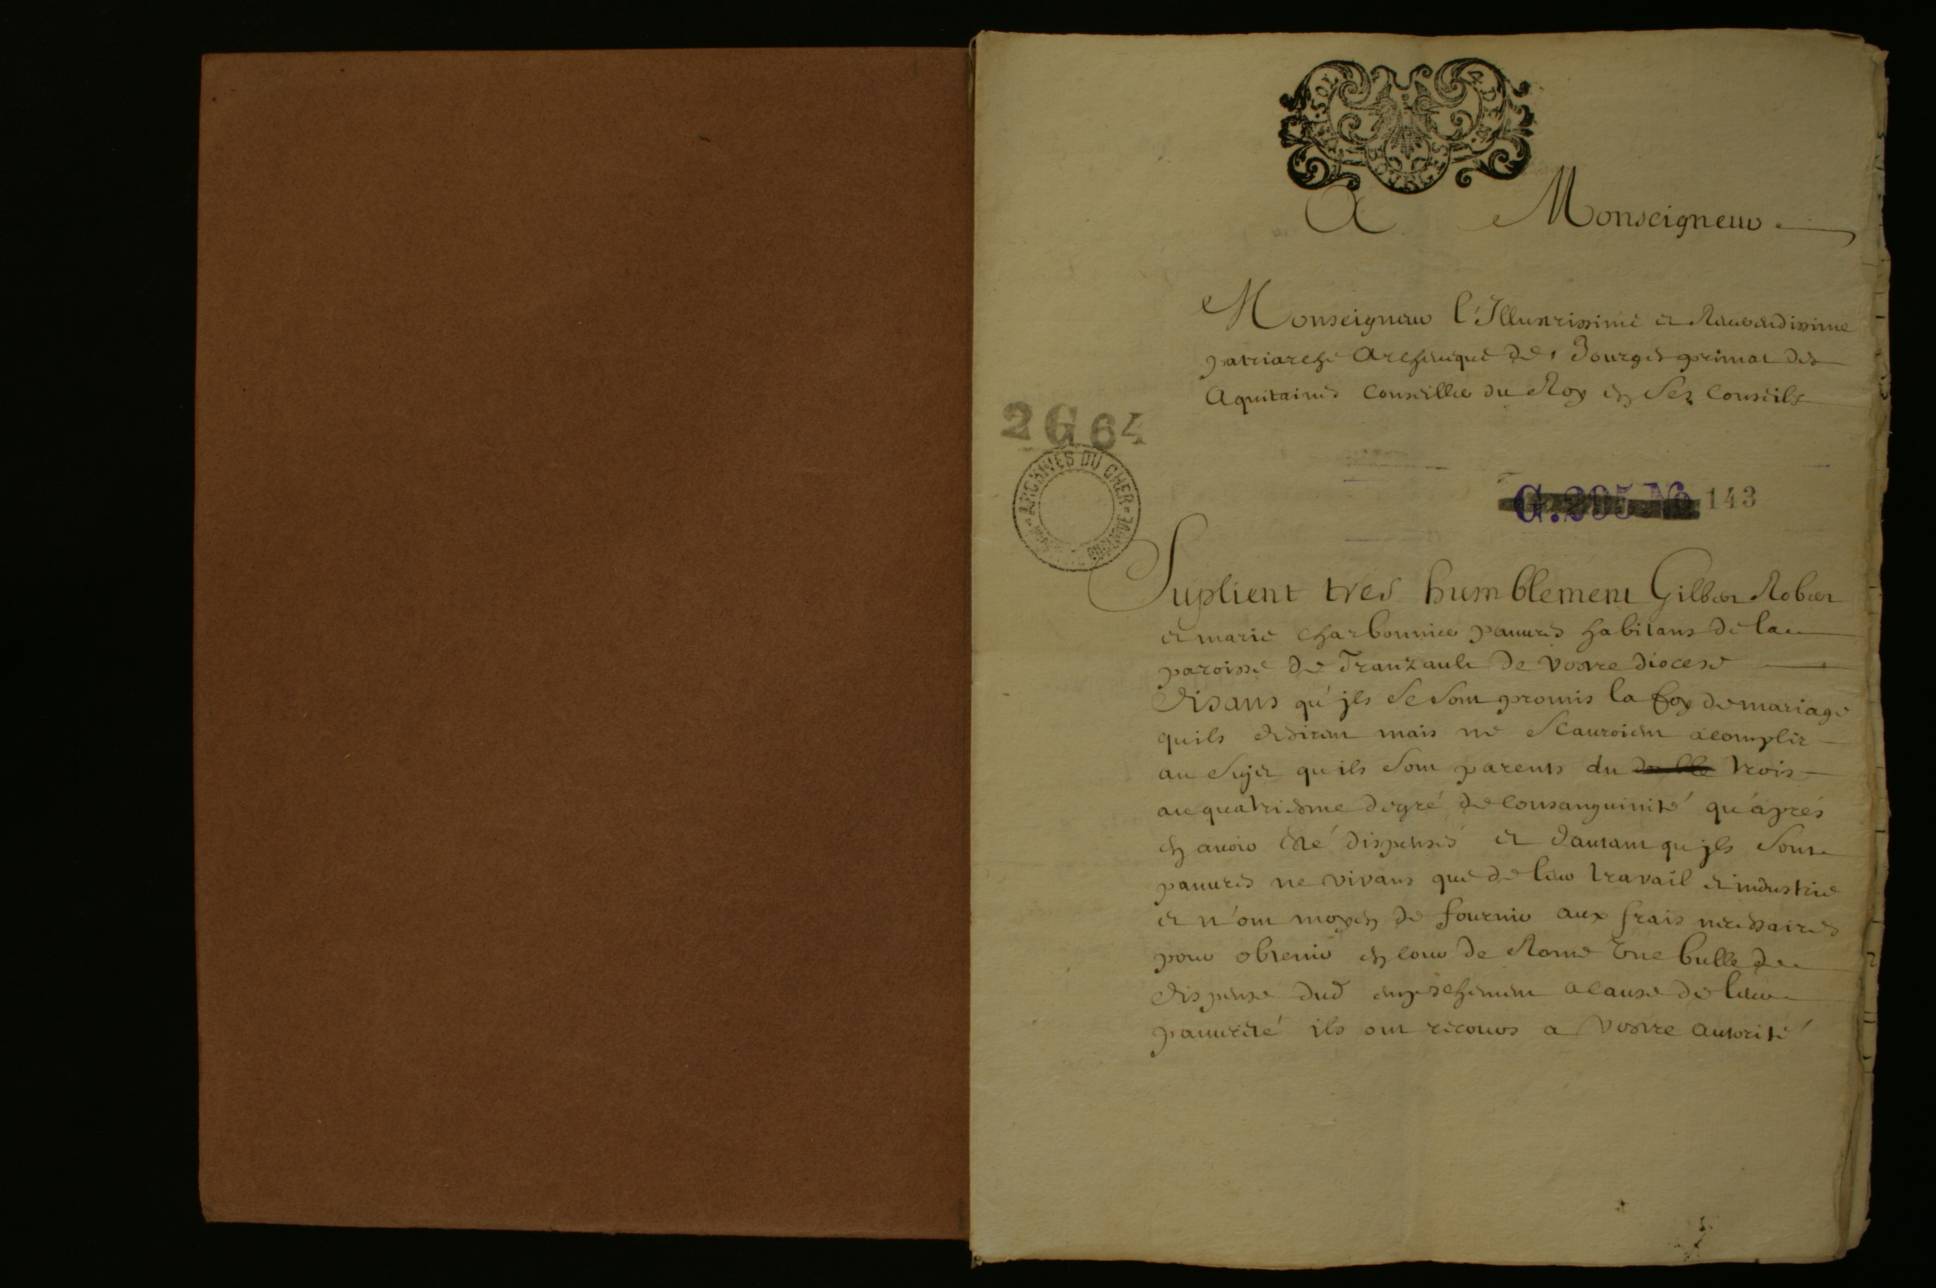 A Monseigneur
Monseigneur l'Illustrissime et Reverendissime
patriarche Archeveque de Bourges primat des
Aquitaines Conseiller du Roy en Ses Conseils
2 G 64
ARCHIVES DU CHER
G. 295 No 143
Suplient tres humblement Gilbert Robert
et marie charbonnier pauvres habitans de la
paroisse de Tranzault de vostre diocese
disans qu'jls se sont promis la foy de mariage
quils desirent mais ne scauroient acomplir
au sujet quils sont parents du trois
au quatriesme degré de consanguinité qu'aprés
en avoir été dispensés et dautant qu jls sont
pauvres ne vivans que de leur travail et industrie
et n'ont moyen de fournir aux frais necessaires
pour obtenir en cour de Rome une bulle de
dispense dud empeschement a cause de leur
pauvreté ils ont recours a vostre autorité